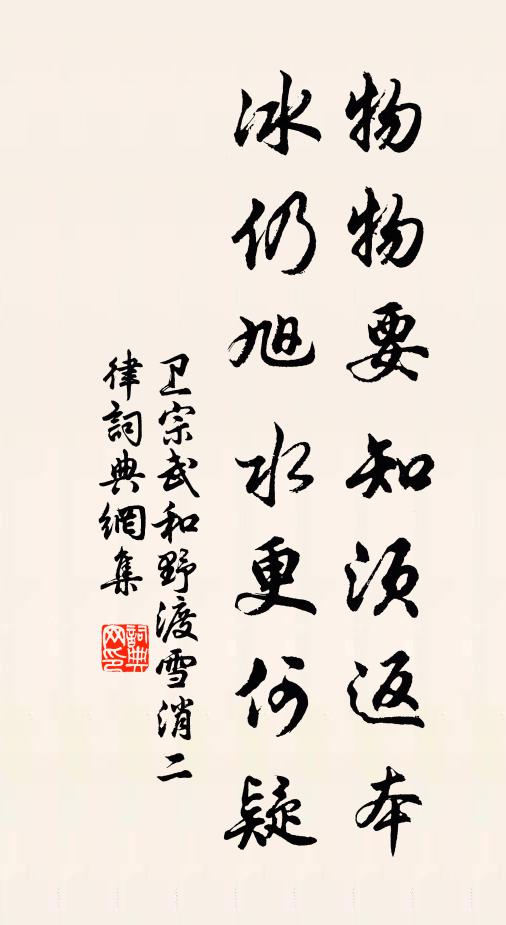 物物要知须返本
冰仍旭水更何疑
卫宗武和野渡雪消二
律詞典網集
詞典网印